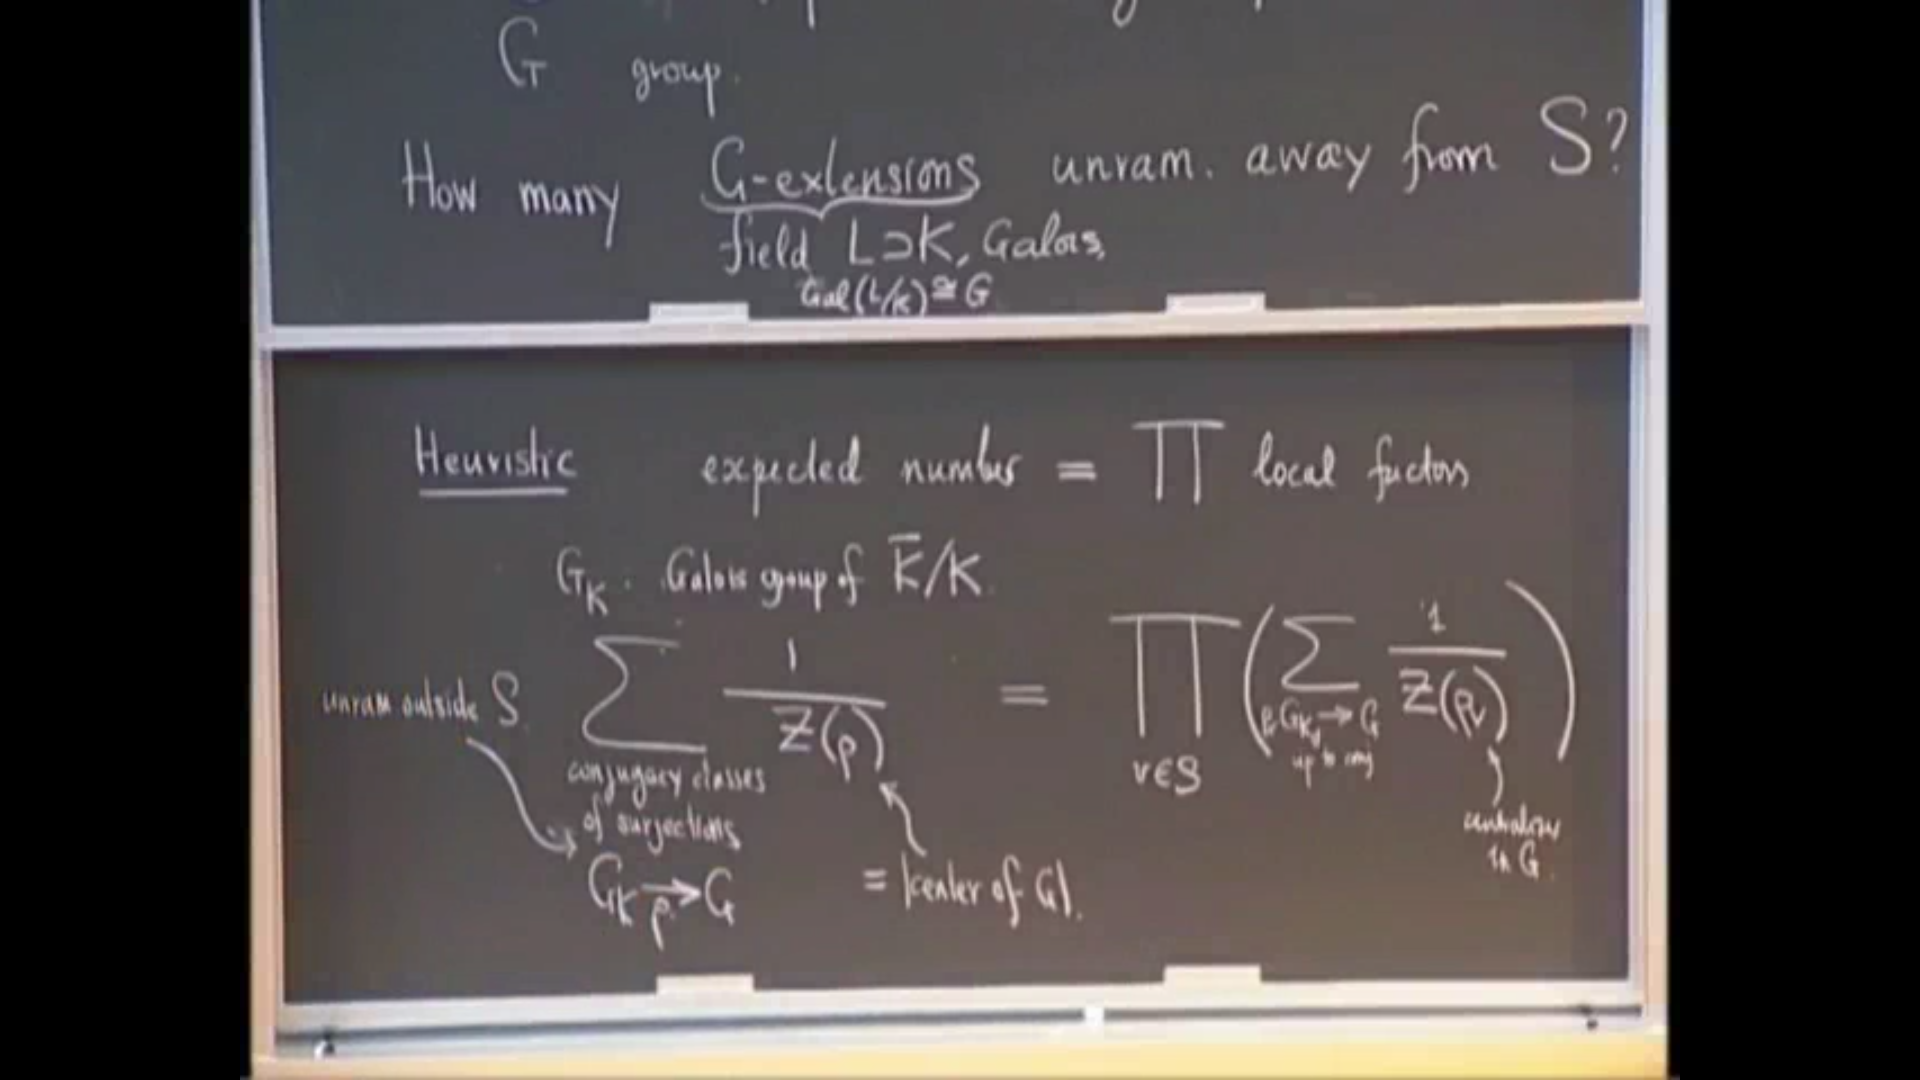 G group.
How many G-extensions unram. away from S?
field L⊃K, Galois,
Gal(L/K)≅G
Heuristic expected number = ∏ local factors
G_K . Galois group of K̄/K.
unram outside S ∑ 1/Z(ρ) = ∏ ( ∑ 1/Z(ρ_v) )
conjugacy classes v∈S ρ_v: G_{K_v} → G
of surjections up to conj
G_K →_ρ G = |center of G|. centralizer
in G.